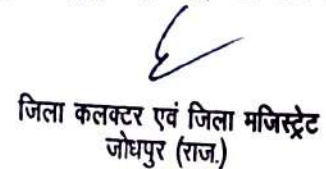 जिला कलक्टर एवं जिला मजिस्ट्रेट
जोधपुर (राज.)